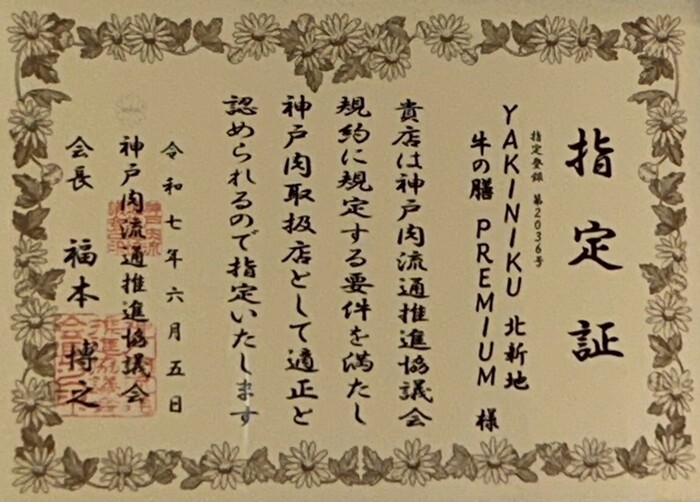 指定証
指定登録 第2036号
YAKINIKU 北新地
牛の膳 PREMIUM 様
貴店は神戸肉流通推進協議会
規約に規定する要件を満たし
神戸肉取扱店として適正と
認められるので指定いたします
令和七年六月五日
神戸肉流通推進協議会
会長 福本 博之